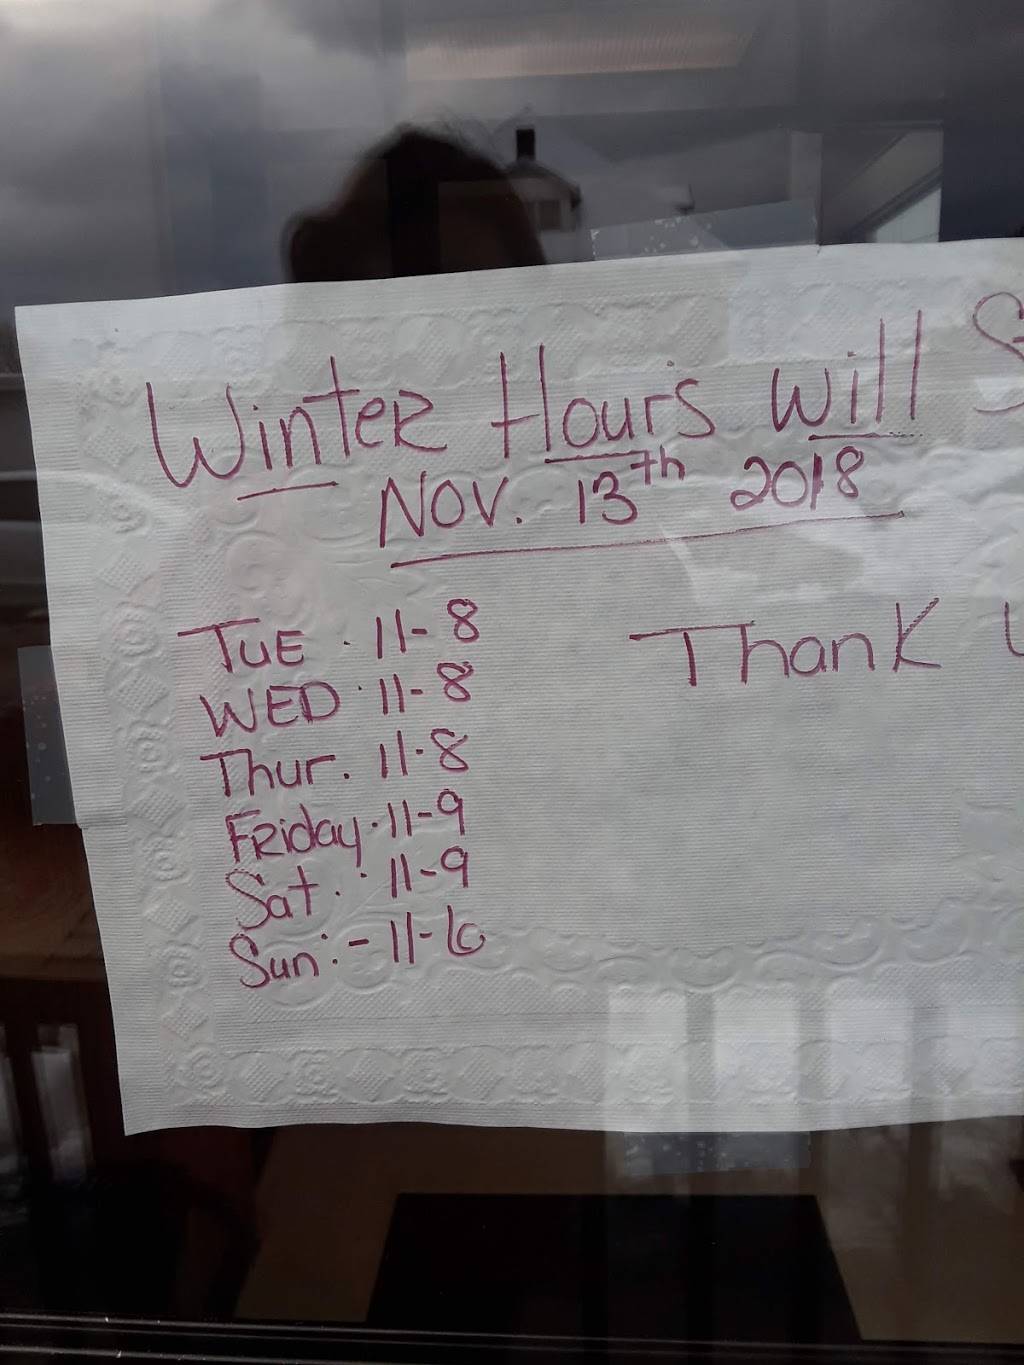 Winter Hours Will S
Nov. 13th 2018
Tue. 11-8
Wed. 11-8
Thur. 11-8
Friday. 11-9
Sat. 11-9
Sun: - 11-6
Thank